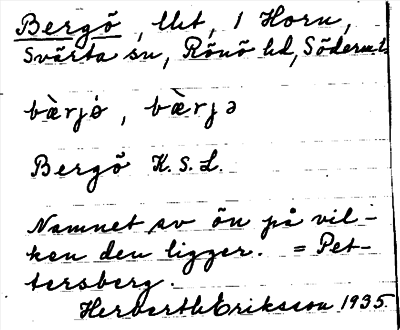 Bergö, Utt, 1 Horn,
Svärta sn, Rönö hd, Söderml.
bæ̀rjö, bæ̀rjə
Bergö K.S.L.
Namnet av ön på vil-
ken den ligger. = Pet-
tersberg.
Herberth Eriksson 1935